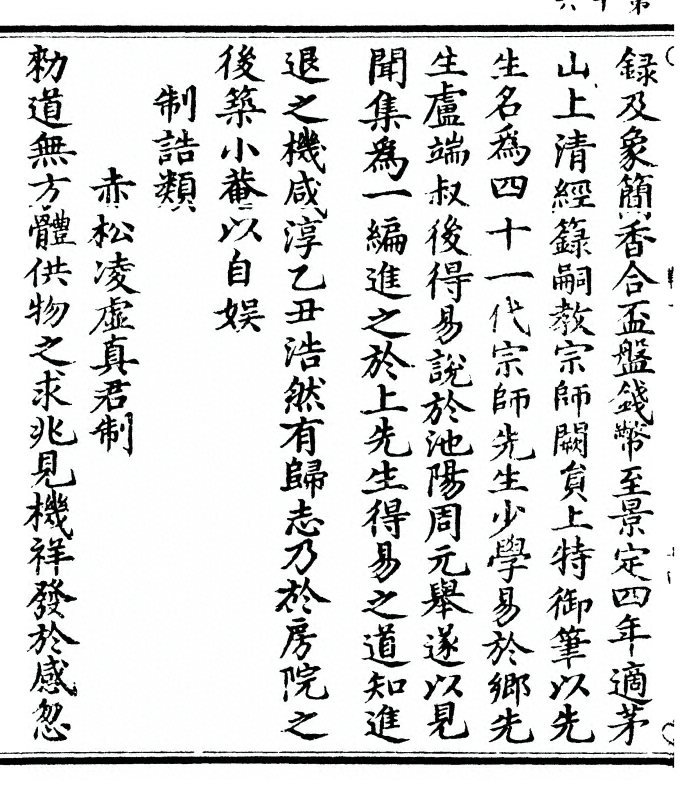 録及象簡香合盃盤錢幣至景定四年適茅
山上清經籙嗣教宗師闕貟上特御筆以先
生名爲四十一代宗師先生少學易於鄉先
生盧端叔後得易說於池陽周元舉遂以見
聞集爲一編進之於上先生得易之道知進
退之機咸淳乙丑浩然有歸志乃於房院之
後築小菴以自娱
制誥類
赤松凌虛真君制
勑道無方體供物之求兆見機祥發於感忽